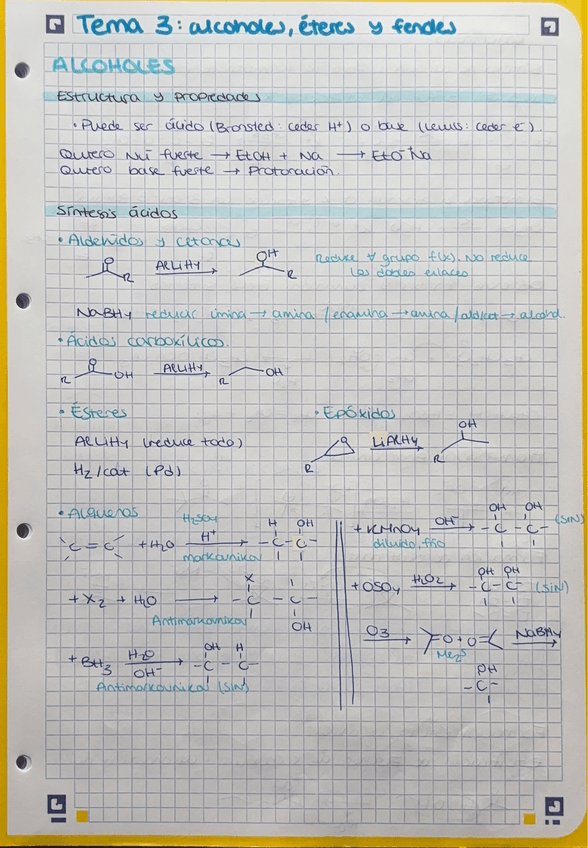 Tema 3: alcoholes, éteres y fenoles
ALCOHOLES
Estructura y propiedades
• Puede ser ácido (Bronsted: ceder H⁺) o base (Lewis: ceder e⁻).
Quiero Nü fuerte → EtOH + Na → EtO⁻⁺Na
Quiero base fuerte → Protonación.
Síntesis ácidos
• Aldehidos y cetonas
O R AlLiH4 → OH R
Reduce ∀ grupo f(x). No reduce
los dobles enlaces
NaBH4 reducir imina → amina / enamina → amina / ald/cet → alcohol.
• Ácidos carboxílicos.
R O OH AlLiH4 → R OH
• Ésteres
AlLiH4 (reduce todo)
H2/cat (Pd)
• Epóxidos
R O LiAlH4 → OH R
• Alquenos
C=C + H2O H2SO4 H⁺ → H OH -C-C-
markovnikov
+ X2 + H2O → X -C-C- OH
Antimarkovnikov
+ BH3 H2O OH⁻ → OH H -C-C-
Antimarkovnikov (SIN)
+ KMnO4 OH⁻ → OH OH -C-C- (SIN)
diluido, frío
+ OSO4 H2O2 → OH OH -C-C- (SIN)
O3 → O + O= NaBH4 →
Me2S
OH
-C-